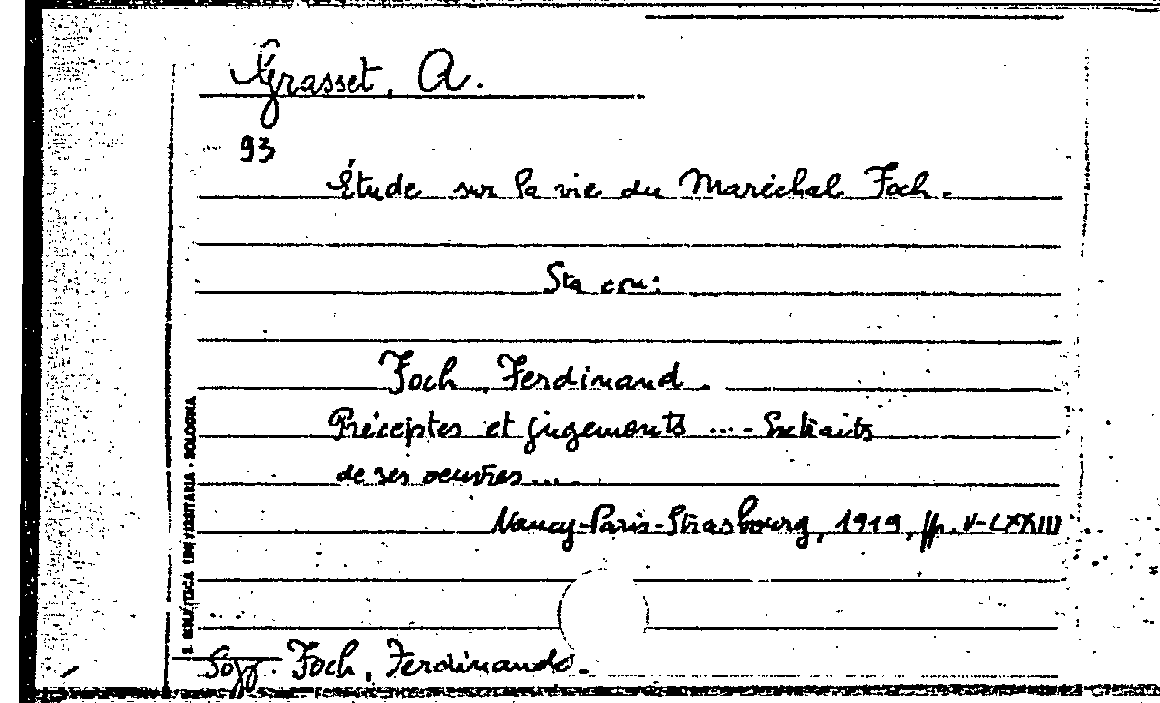 Grasset, A.
93
Étude sur la vie du Maréchal Foch.
Sta con:
Foch, Ferdinand.
Préceptes et jugements ... - Extraits
de ses oeuvres ...
Nancy-Paris-Strasbourg, 1919, pp. V-LXXIII
Sogg. Foch, Ferdinando.
S. BIBLIOTECA UNIVERSITARIA - BOLOGNA